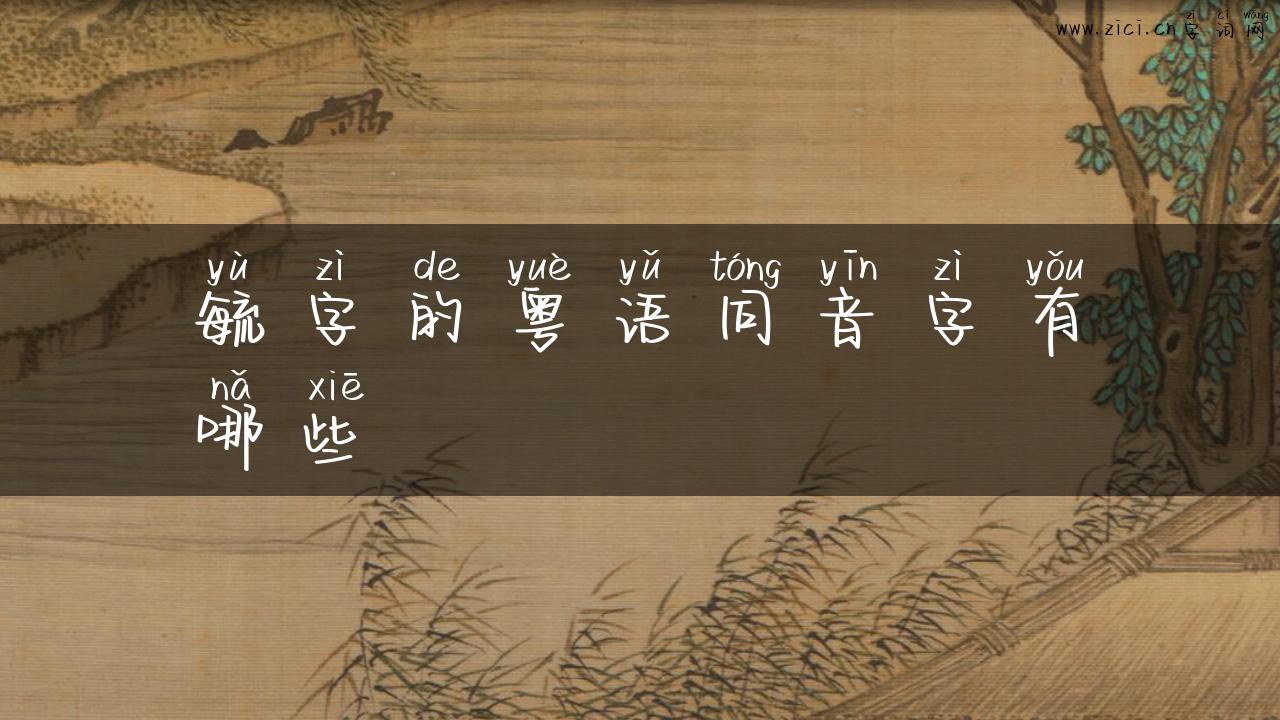 zì cí wǎng
www.zici.cn字词网
yù zì de yuè yǔ tóng yīn zì yǒu
毓字的粤语同音字有
nǎ xiē
哪些